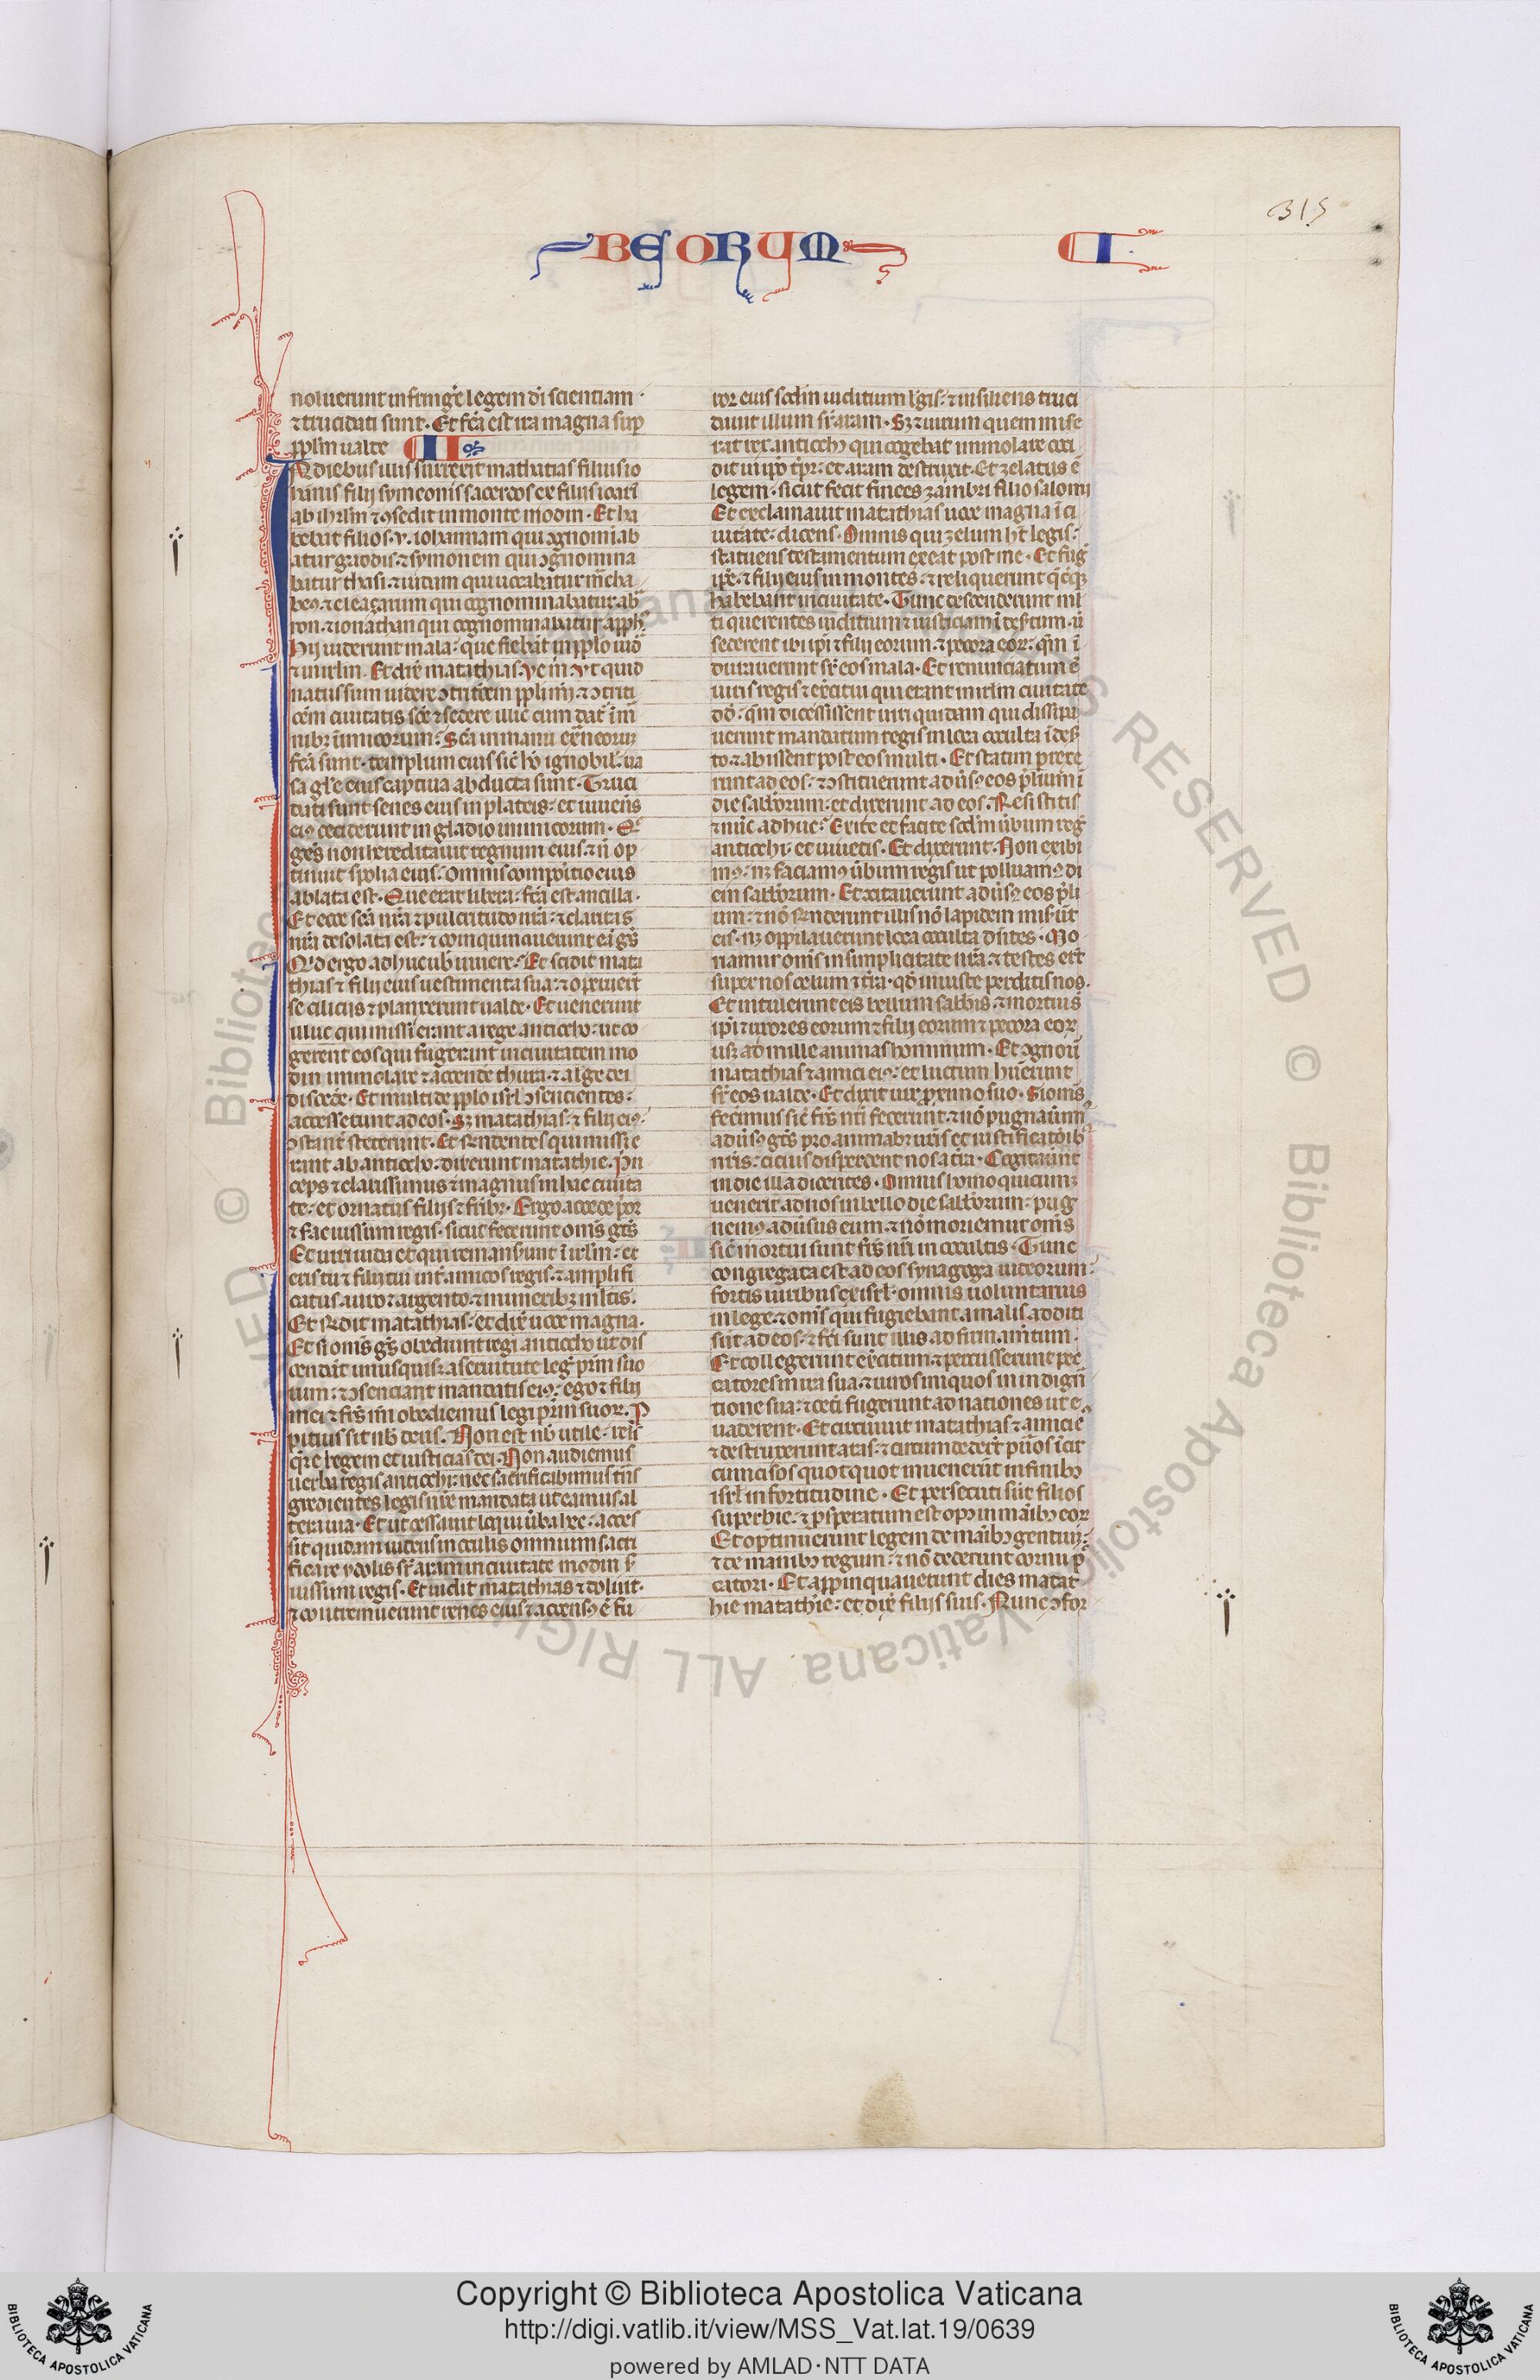 315
BEORUM I
noluerunt infringe legem di scientiam
⁊ trucidati sunt. Et fca est ira magna sup
pplm ualde II
N diebus illis surrexit mathatias filius io
hannis filij symeonis sacerdos ex filijs ioari
ab ihrlm ⁊ ꝯsedit in monte modin. Et ha
bebat filios .v. iohannam qui ꝯgnominab
atur gaddis. ⁊ symonem qui ꝯgnomina
batur thasi. ⁊ iudam qui uocabatur macha
beꝰ. ⁊ eleazarum qui cognominabatur ab
ron. ⁊ ionathan qui cognominabatur apph
Hij uiderunt mala. que fiebāt in pplo iuda
⁊ in irlm. Et dix matathias. Ve m. vt quid
natus sum uidere ꝯtritōem ppli mī. ⁊ ꝯtriti
oem ciuitatis sce ⁊ sedere illic cum dat in ma
nibꝫ inimicorum. Sca in manu extneorum
fca sunt. templum eius sic ho ignobil. ua
sa gle eius captiua abducta sunt. Truci
dati sunt senes eius in plateis. et iuuenes
eiꝰ ceciderunt in gladio inimicorum. Que
gens non hereditauit regnum eius. ⁊ n op
tinuit spolia eius. Omnis compositio eius
ablata est. Que erat libera. fca est ancilla.
Et ecce sca nra ⁊ pulcritudo nra. ⁊ claritas
nra desolata est. ⁊ coinquinauerunt ea gens
Qd ergo adhuc nob uiuere. Et scidit mata
thias ⁊ filij eius uestimenta sua. ⁊ operuerut
se cilicijs ⁊ planxerunt ualde. Et uenerunt
illuc qui missi erant a rege anticcho. ut co
gerent eos qui fugerant in ciuitatem mo
din immolare ⁊ accende thura. ⁊ a lege dei
discede. Et multi de pplo isrl ꝯsencientes.
accesserunt ad eos. Sꝫ matathias. ⁊ filij eiꝰ.
ꝯstant steterunt. Et rndentes qui missi e
rant ab anticcho. dixerunt matathie. Prin
ceps ⁊ clarissimus ⁊ magnus in hac ciuita
te. et ornatus filijs ⁊ fribꝫ. Ergo accede prior
⁊ fac iussum regis. sicut fecerunt oms gentes
Et uiri iuda et qui remanserunt in irlm. et
eris tu ⁊ filij tui int amicos regis. ⁊ amplifi
catus auro ⁊ argento. ⁊ muneribꝫ mltis.
Et rndit matathias. et dix uoce magna.
Et si oms gens obediunt regi anticcho ut dis
cendat unusquisqꝫ a seruitute leg prm suo
rum. ⁊ ꝯsenciant mandatis eiꝰ. ego ⁊ filij
mei ⁊ frs mi obediemus legi prm suor. Pro
pitius sit nob deus. Non est nob utile. reli
qre legem et iusticias dei. Non audiemus
uerba regis anticchi. nec sacrificabimus tns
gredientes legis nre mandata ut eamus al
tera uia. Et ut cessauit loqui uba hec. acces
sit quidam iudeus in oculis omnium sacri
ficare ydolis sr aram in ciuitate modin s
iussum regis. Et uidit matathias ⁊ doluit.
⁊ contremuerunt renes eius ⁊ accensꝰ e fu
ror eius scdm iudicium legis. ⁊ insiliens truci
dauit illum sr aram. Sꝫ ⁊ uirum quem mise
rat rex anticchꝰ qui cogebat immolare occi
dit in ipo tpr. et aram destruxit. Et zelatus e
legem. sicut fecit finees zambri filio salomi
Et exclamauit matathias uoce magna in ci
uitate. dicens. Omnis qui zelum ht legis.
statuens testamentum exeat post me. Et fug
ipe. ⁊ filij eius in montes. ⁊ reliquerunt qcqꝫ
habebant in ciuitate. Tunc descenderunt ml
ti querentes iudicium ⁊ iusticiam i destum. ⁊
sederent ibi ipi ⁊ filij eorum. ⁊ pecora eor. qm i
durauerunt sr eos mala. Et renunciatum e
uiris regis ⁊ exercitui qui erant in irlm ciuitate
dd. qm dicessissent uiri quidam qui dissipa
uerunt mandatum regis in loca occulta i deser
to. ⁊ abissent post eos multi. Et statim prexe
runt ad eos. ⁊ ꝯstituerunt adusꝰ eos prlium i
die sabborum. et dixerunt ad eos. Resistitis
⁊ nuc adhuc. Exite et facite scdm ubum reg
anticchi. et uiuetis. Et dixerunt. Non exibi
mꝰ. nꝫ faciamꝰ ubum regis ut polluamꝰ di
em sabborum. Et ꝯcitauerunt aduersꝰ eos prli
um. ⁊ no rnderunt illis no lapidem miserut
eis. nꝫ oppilauerunt loca occulta dntes. Mo
riamur oms in simplicitate nra. ⁊ testes ert
super nos celum ⁊ tra. qd iniuste perditis nos.
Et intulerunt eis bellum sabbis. ⁊ mortui s
ipi ⁊ uxores eorum ⁊ filij eorum ⁊ pecora eor
usqꝫ ad mille animas hominum. Et ꝯgnouit
matathias ⁊ amici eiꝰ. et luctum huerunt
sr eos ualde. Et dixit uir proximo suo. Si oms
fecerimus sic frs nri fecerunt. ⁊ no pugnauerim
aduersꝰ gentes pro animabꝫ nris et iustificatoibꝫ
nris. cicius disperdent nos a tra. Cogitarunt
in die illa dicentes. Omnis homo quicumqꝫ
uenerit ad nos in bello die sabborum. pug
nemꝰ aduersus eum. ⁊ no moriemur oms
sic mortui sunt frs nri in occultis. Tunc
congregata est ad eos synagoga iudeorum.
fortis uiribus ex isrl. omnis uoluntarius
in lege. ⁊ oms qui fugiebant a malis additi
sut ad eos. ⁊ fci sunt illis ad firmamtum.
Et collegerunt exercitum ⁊ percusserunt pec
catores in ira sua. ⁊ uiros iniquos in indigna
tione sua. ⁊ ceti fugerunt ad nationes ut e
uaderent. Et circuiuit matathias ⁊ amici e
⁊ destruxerunt aras. ⁊ circumcidert pueros icir
cumcisos quotquot inuenerut in finibꝰ
isrl in fortitudine. Et persecuti sut filios
superbie. ⁊ prosperatum est opꝰ in manibꝰ eor
Et optinuerunt legem de manibꝰ gentium.
⁊ de manibꝰ regum. ⁊ no dederunt cornu pec
catori. Et appinquauerunt dies matat
hie matathie. et dix filijs suis. Nunc ꝯfor
© Biblioteca Apostolica Vaticana ALL RIGHTS RESERVED © Biblioteca Apostolica Vaticana ALL RIGHTS RESERVED
BIBLIOTECA APOSTOLICA VATICANA
Copyright © Biblioteca Apostolica Vaticana
http://digi.vatlib.it/view/MSS_Vat.lat.19/0639
powered by AMLAD·NTT DATA
BIBLIOTECA APOSTOLICA VATICANA